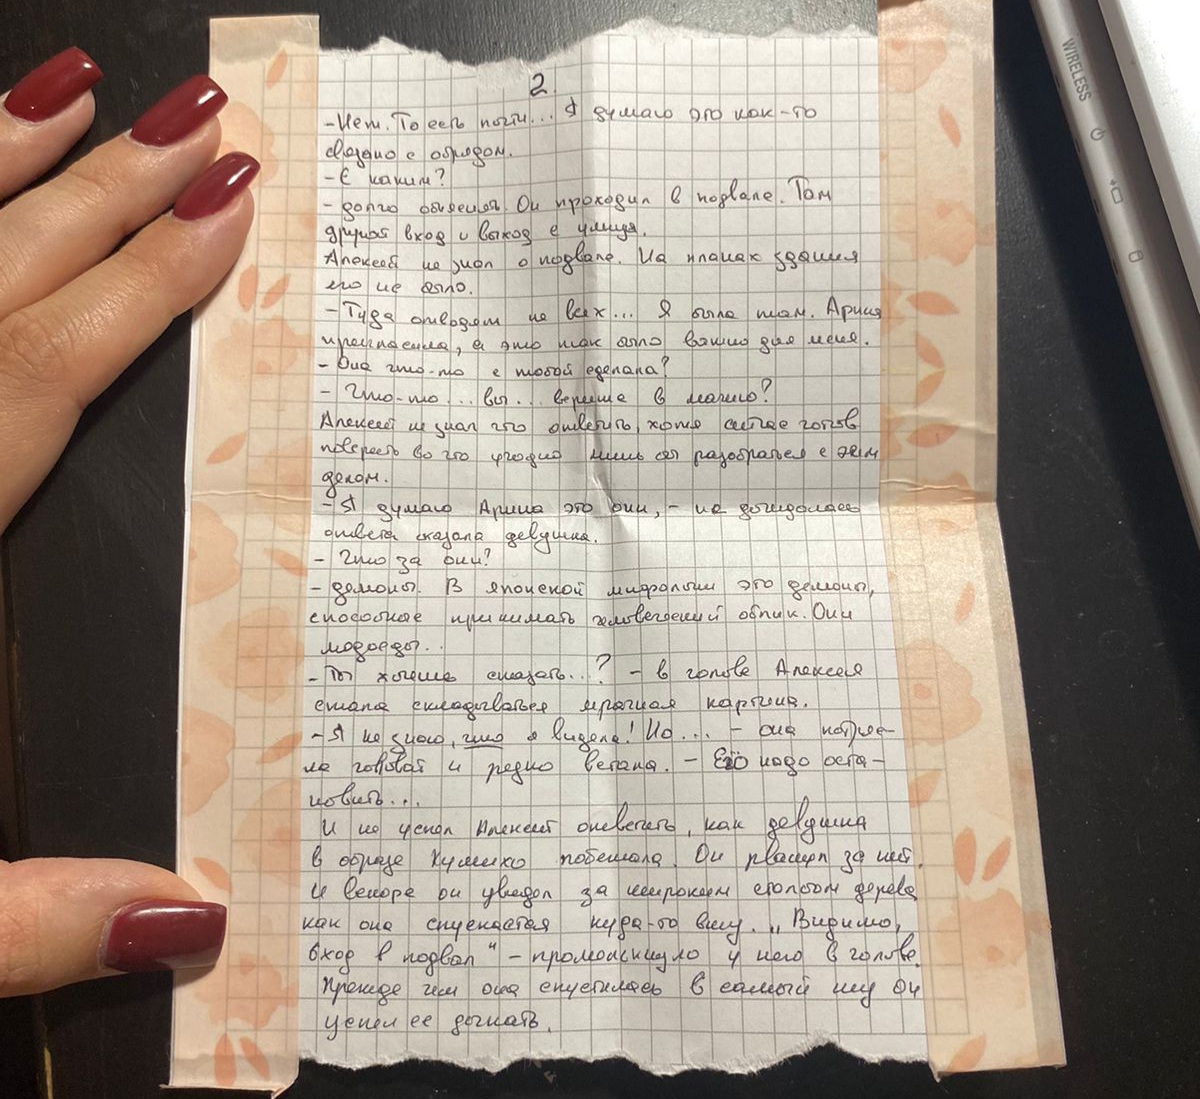 2.
-Нет. То есть почти... Я думаю это как-то
связано с обрядом.
- С каким?
- долго объяснять. Он проходил в подвале. Там
другой вход и выход с улицы.
Алексей не знал о подвале. На планах здания
его не было.
- Туда отводят не всех... Я была там. Арина
пригласила, а это так было важно для меня.
- Она что-то с тобой сделала?
- Что-то... вы... верите в магию?
Алексей не знал что ответить, хотя сейчас готов
поверить во что угодно лишь бы разобраться с этим
делом.
- Я думаю Арина это они, - не дождалась
ответа сказала девушка.
- Что за они?
- демоны. В японской мифологии это демоны,
способные принимать человеческий облик. Они
людоеды...
- Ты хочешь сказать...? - в голове Алексея
стала складываться мрачная картина.
- Я не знаю, что я видела! Но... - она потряс-
ла головой и резко встала. - Её надо оста-
новить...
И не успел Алексей ответить, как девушка
в образе Кумико побежала. Он рванул за ней.
И вскоре он увидел за широким столбом дерева
как она спускается куда-то вниз. „Видимо,
вход в подвал" - промелькнуло у него в голове.
Прежде чем она спустилась в самый низ Он
успел ее догнать.
WIRELESS